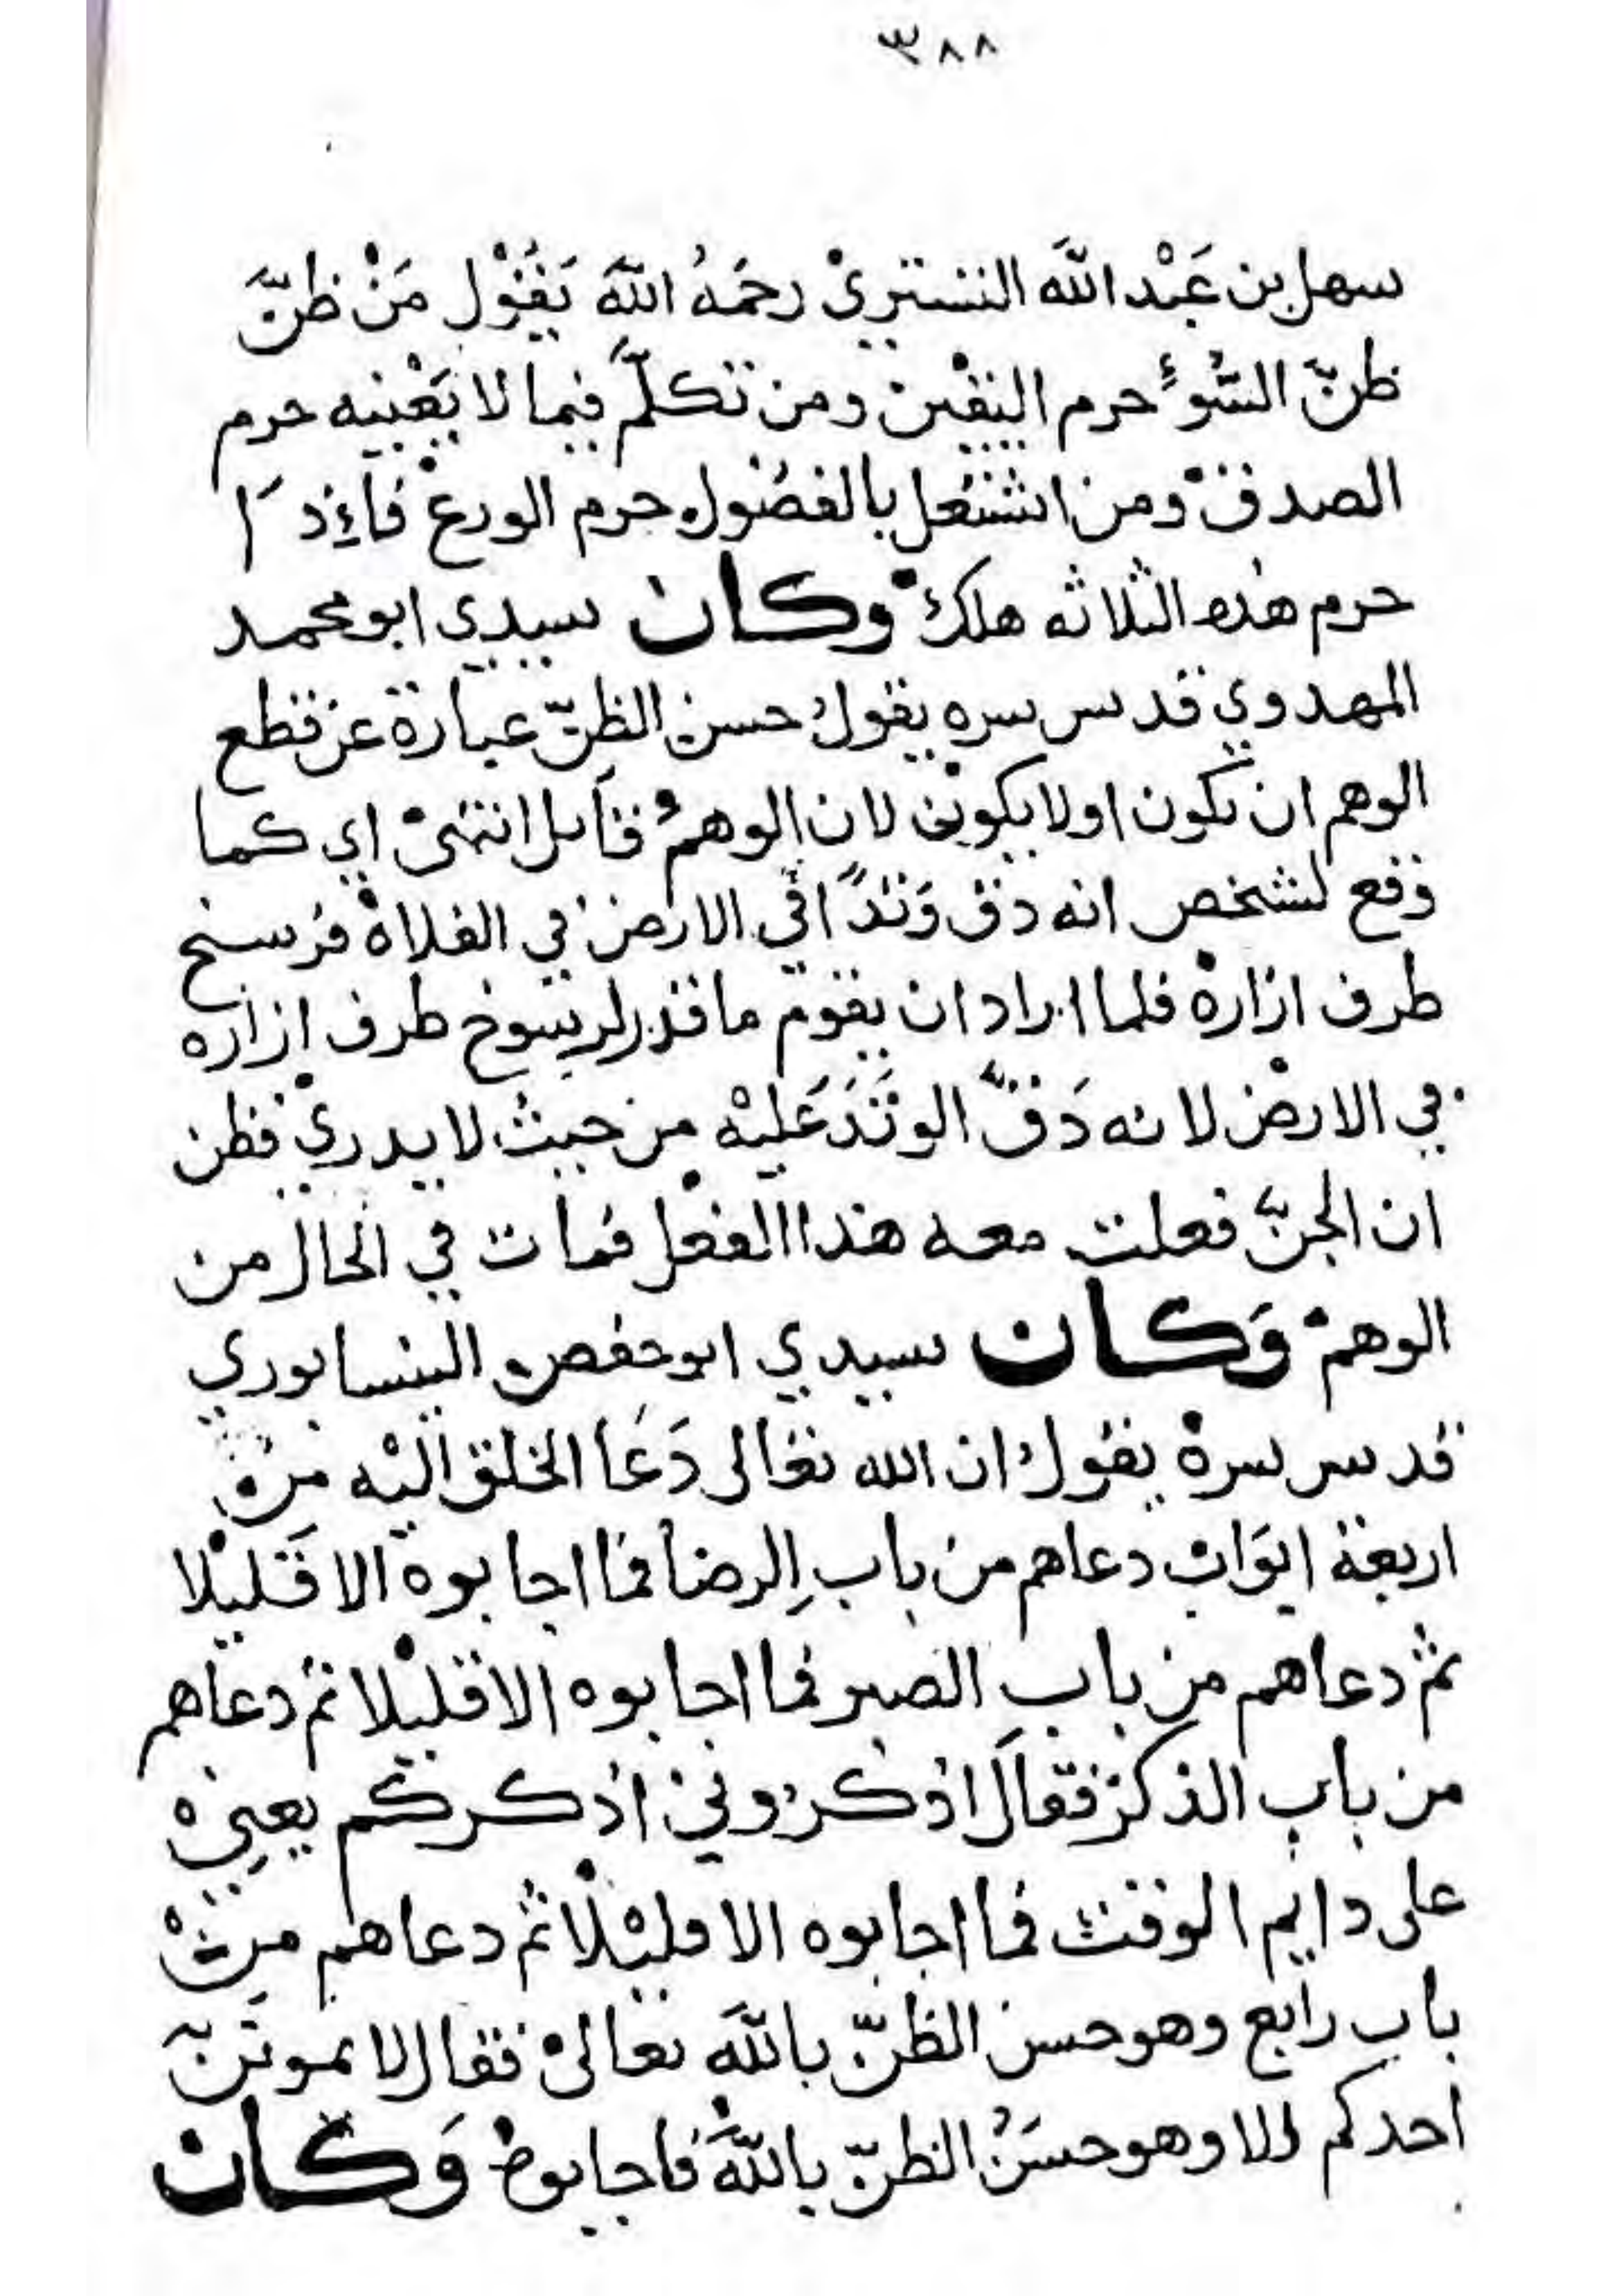 ٣٨٨
سهل بن عَبْد اللّه التستريْ رحمَهُ اللّه يَقُوْل مَنْ ظنّ
ظنّ السُّوءٍ حرم اليقين ومن تكلّم فيما لا يَعْنيه حرم
الصدق ومن اشتغل بالفضول حرم الورع فاءِذَا
حرم هذه الثلاثه هلك وكان سيدي ابو محمد
المهدوي قدس سره يقول حسن الظنّ عبارة عن قطع
الوهم ان يكون اولا يكون لان الوهم قاتل انتهى اي كما
وقع لشخص انه دق وَتدًا في الارض في الفلاة فرسخ
طرف ازاره فلما اراد ان يقوم ما قدر لرسوخ طرف ازاره
في الارض لانه دَقّ الوتَدَ عَليْه من حيث لا يدري فظن
ان الجنّ فعلت معه هذا الفعل فمات في الحال من
الوهم وَكان سيدي ابو حفص النيسابوري
قدس سره يقول ان الله تعالى دَعَا الخلق اليْه من
اربعة ابوَاب دعاهم من باب الرضا فما اجابوه الا قَليْلا
ثم دعاهم من باب الصبر فما اجابوه الا قليْلا ثم دعاهم
من باب الذكر فقال اذكروني اذكركم يعني
على دايم الوقت فما اجابوه الا قليْلًا ثم دعاهم من
باب رابع وهو حسن الظنّ باللّه تعالى فقال لا يموتَنّ
احدكم الا وهو حسَنُ الظنّ باللّه فاجابوه وَكان